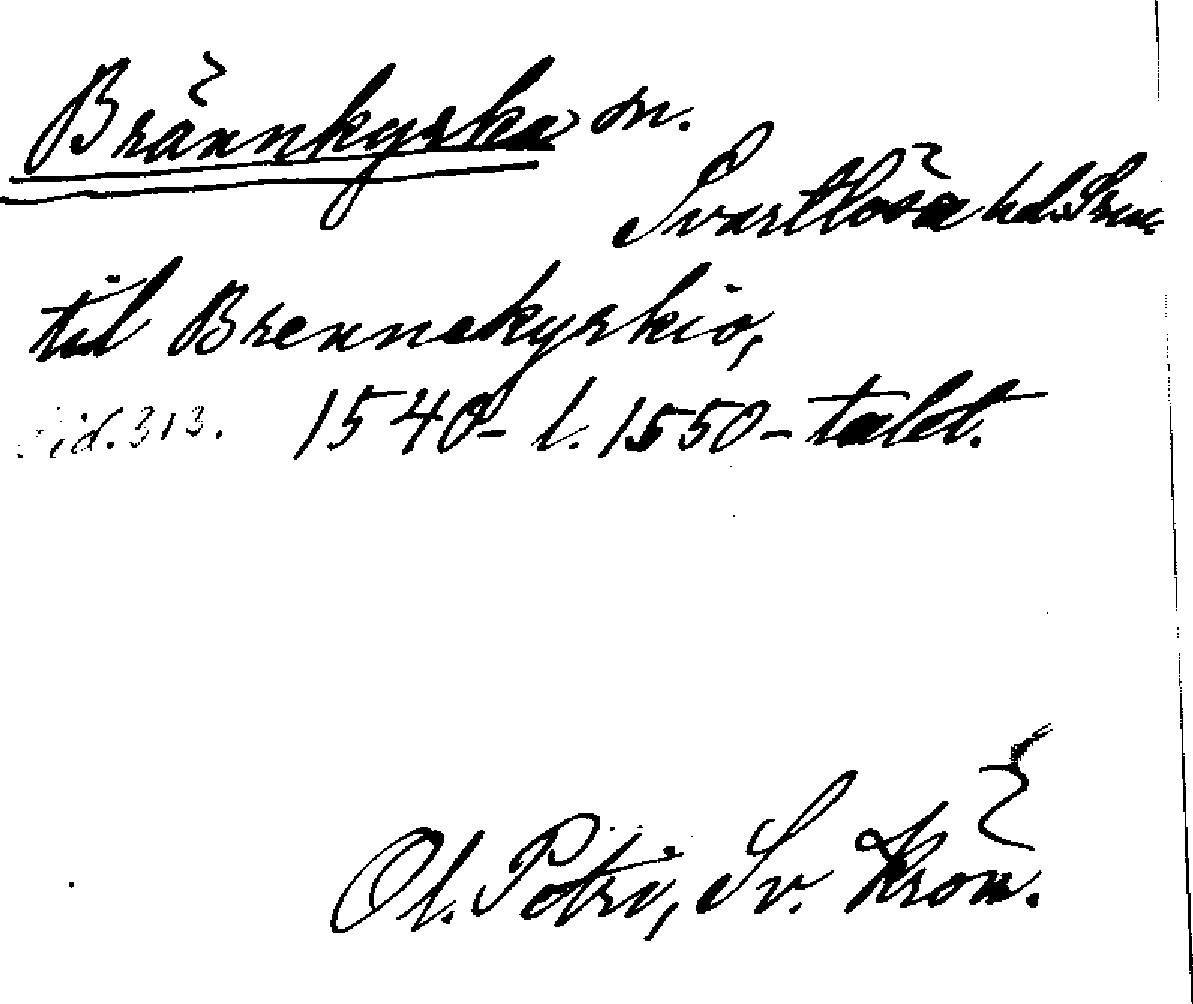 Brännkyrka sn.
Svartlösa hd. Srm
til Brennekyrkio,
sid. 313. 1540- l. 1550-talet.
Ol. Petri, Sv. Krön.